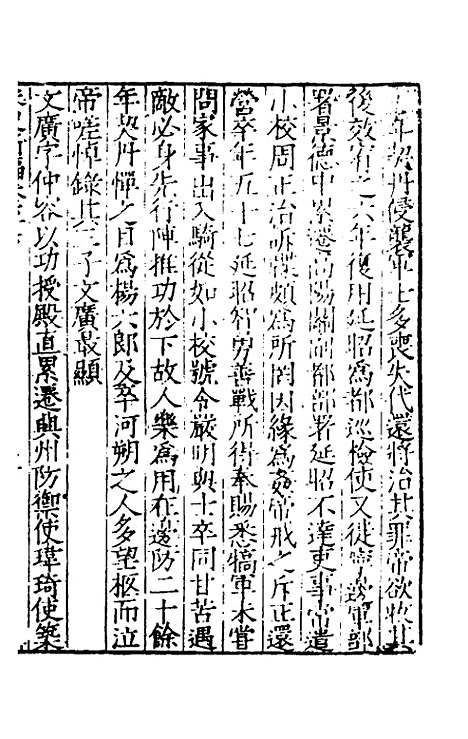 年契丹侵襲軍士多喪失代還將治其罪帝欲收其
後效宥之六年復用延昭為都巡檢使又從寧邊軍部
署景德中累遷高陽關副都部署延昭不達吏事帝遣
小校周正治訴牒頗為所罔因緣為姦帝戒之斥正還
營卒年五十七延昭智勇善戰所得奉賜悉犒軍未嘗
問家事出入騎從如小校號令嚴明與士卒同甘苦遇
敵必身先行陣推功於下故人樂為用在邊防二十餘
年契丹憚之目為楊六郎及卒河朔之人多望柩而泣
帝嗟悼錄其三子文廣最顯
文廣字仲容以功授殿直累遷興州防禦使瑋琦使築